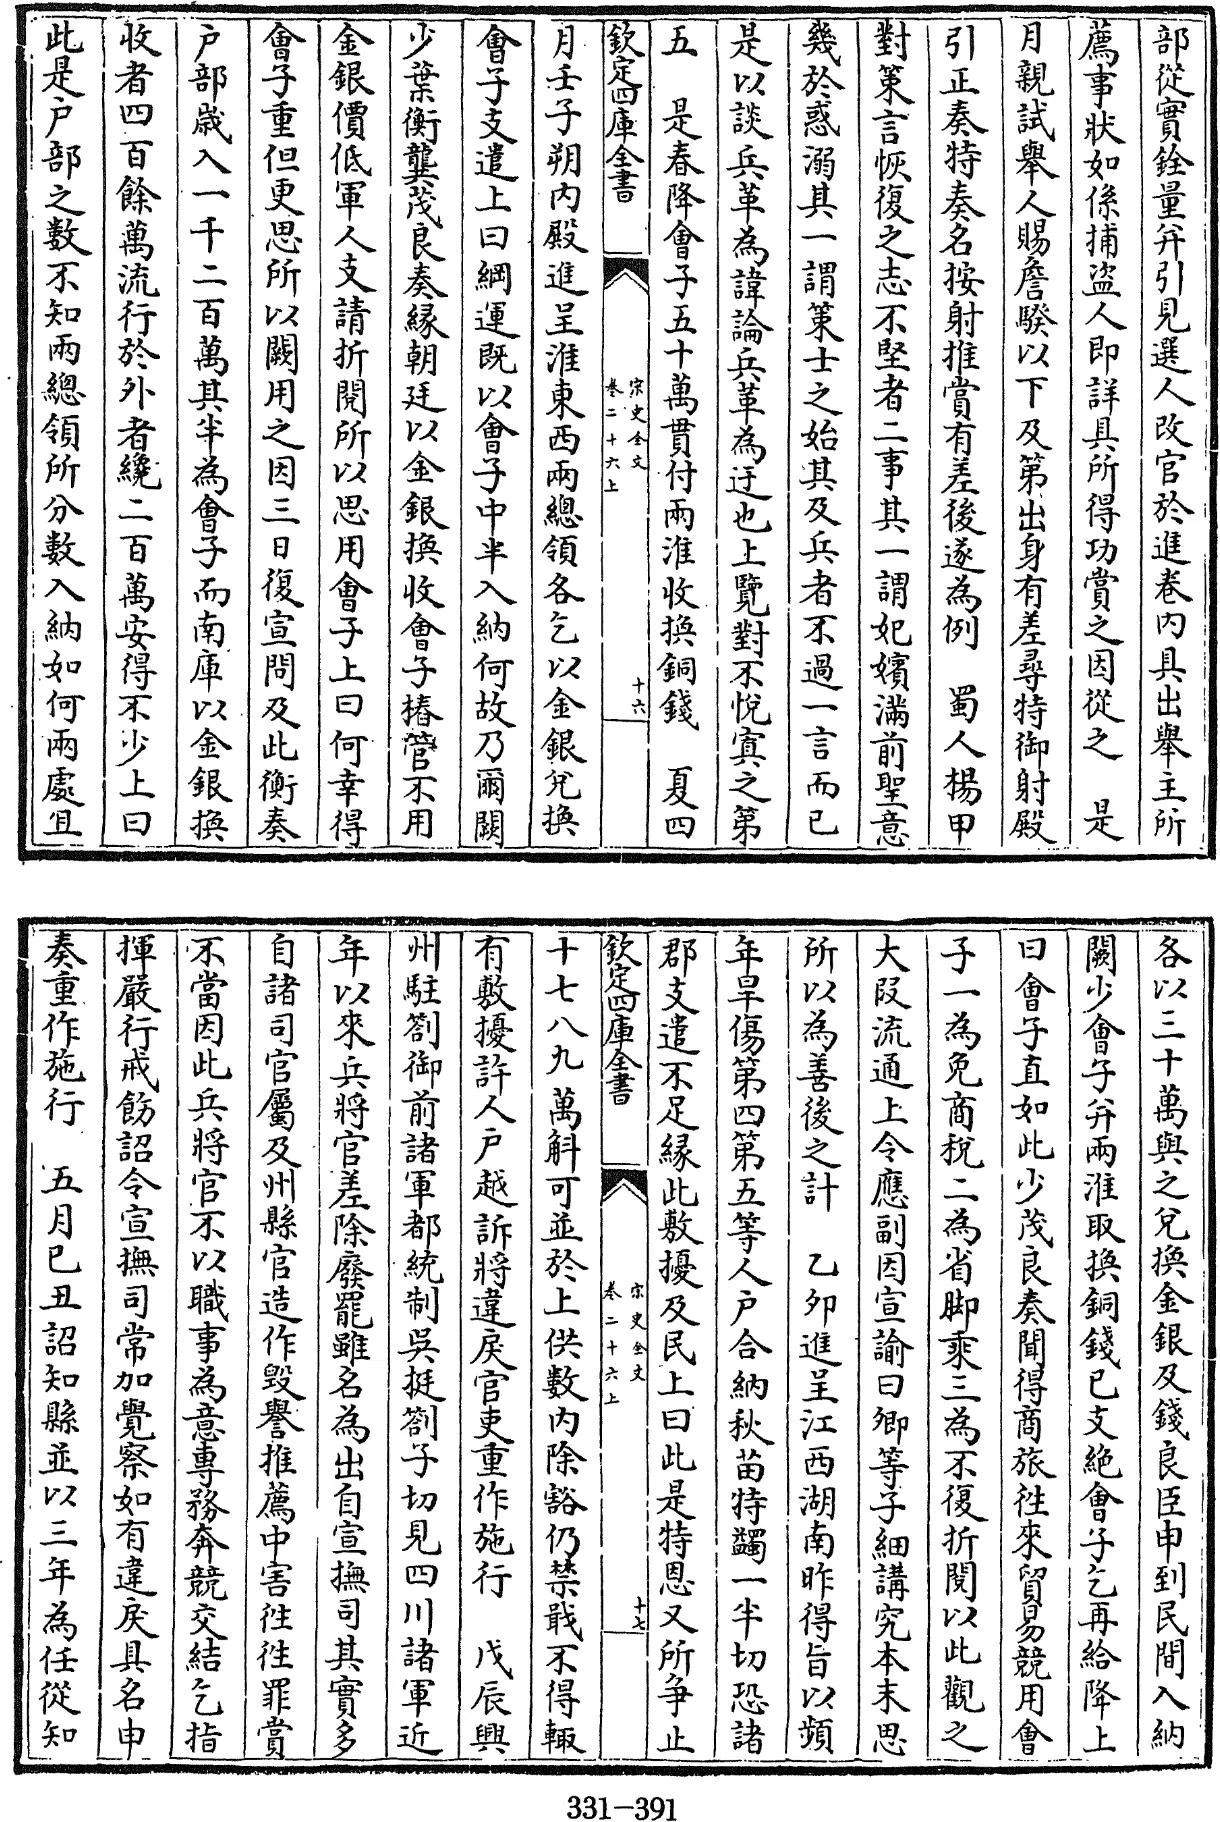 部從實銓量并引見選人改官於進卷内具出舉主所
薦事狀如係捕盗人即詳具所得功賞之因從之　是
月親試舉人賜詹騤以下及第出身有差尋特御射殿
引正奏特奏名按射推賞有差後遂為例　蜀人楊甲
對策言恢復之志不堅者二事其一謂妃嬪滿前聖意
幾於惑溺其一謂策士之始其及兵者不過一言而已
是以談兵革為諱論兵革為迂也上覽對不悅寘之第
五　是春降會子五十萬貫付兩淮收換銅錢　夏四
欽定四庫全書
宋史全文
卷二十六上
十六
月壬子朔内殿進呈淮東西兩總領各乞以金銀兌換
會子支遣上曰綱運既以會子中半入納何故乃爾闕
少葉衡龔茂良奏縁朝廷以金銀換收會子樁管不用
金銀價低軍人支請折閱所以思用會子上曰何幸得
會子重但更思所以闕用之因三日復宣問及此衡奏
户部歳入一千二百萬其半為會子而南庫以金銀換
收者四百餘萬流行於外者纔二百萬安得不少上曰
此是户部之數不知兩總領所分數入納如何兩處且
各以三十萬與之兌換金銀及錢良臣申到民間入納
闕少會子并兩淮取換銅錢已支絶會子乞再給降上
曰會子直如此少茂良奏聞得商旅徃來貿易競用會
子一為免商稅二為省脚乘三為不復折閱以此觀之
大叚流通上令應副因宣諭曰卿等子細講究本末思
所以為善後之計　乙卯進呈江西湖南昨得旨以頻
年旱傷第四第五等人户合納秋苗特蠲一半切恐諸
郡支遣不足縁此敷擾及民上曰此是特恩又所争止
欽定四庫全書
宋史全文
卷二十六上
十七
十七八九萬斛可並於上供數内除豁仍禁戢不得輙
有敷擾許人户越訴將違戾官吏重作施行　戊辰興
州駐劄御前諸軍都統制吳挺劄子切見四川諸軍近
年以來兵將官差除廢罷雖名為出自宣撫司其實多
自諸司官屬及州縣官造作毁譽推薦中害徃徃罪賞
不當因此兵將官不以職事為意專務奔競交結乞指
揮嚴行戒飭詔令宣撫司常加覺察如有違戾具名申
奏重作施行　五月已丑詔知縣並以三年為任從知
331-391